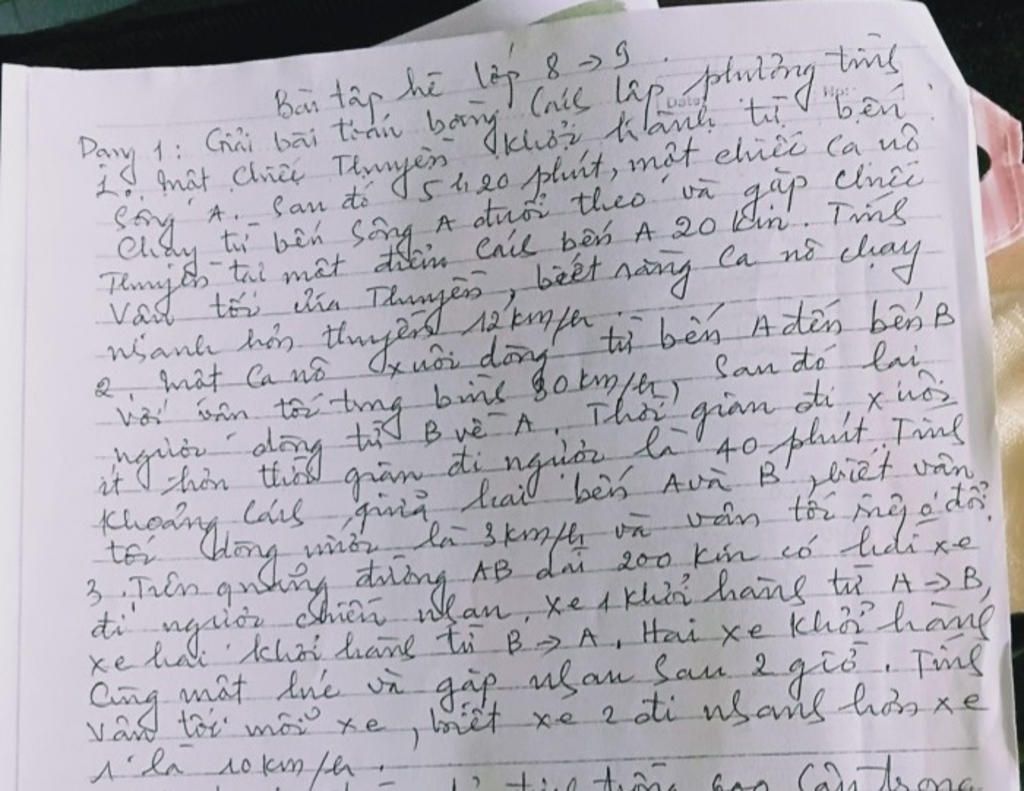 Bài tập hè lớp 8 → 9.
Dạng 1: Giải bài toán bằng cách lập phương trình
1. Một chiếc Thuyền khởi hành từ bến
sông A. Sau đó 5h20 phút, một chiếc ca nô
chạy từ bến sông A đuổi theo và gặp chiếc
Thuyền tại một điểm cách bến A 20 km. Tính
vận tốc của Thuyền, biết rằng ca nô chạy
nhanh hơn thuyền 12 km/h.
2. Một ca nô xuôi dòng từ bến A đến bến B
với vận tốc trung bình 30 km/h, sau đó lại
ngược dòng từ B về A. Thời gian đi xuôi
ít hơn thời gian đi ngược là 40 phút. Tính
khoảng cách giữa hai bến A và B, biết vận
tốc dòng nước là 3 km/h và vận tốc
3. Trên quãng đường AB dài 200 km có hai xe
đi ngược chiều nhau. xe 1 khởi hành từ A → B,
xe hai khởi hành từ B → A. Hai xe khởi hành
cùng một lúc và gặp nhau sau 2 giờ. Tính
vận tốc mỗi xe, biết xe 2 đi nhanh hơn xe
1 là 10 km/h.